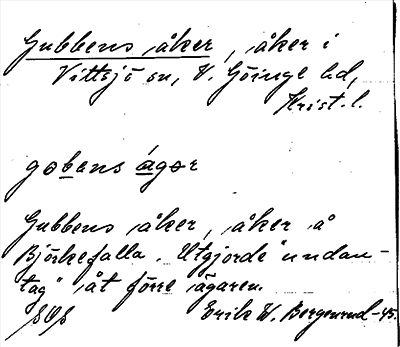 Gubbens åker, åker i
Vittsjö sn, V. Göinge hd,
Krist. l.
gobens ágər
Gubbens åker, åker å
Björkefalla. Utgjorde "undan-
tag" åt förre ägaren.
Erik W. Bergenrud -45.